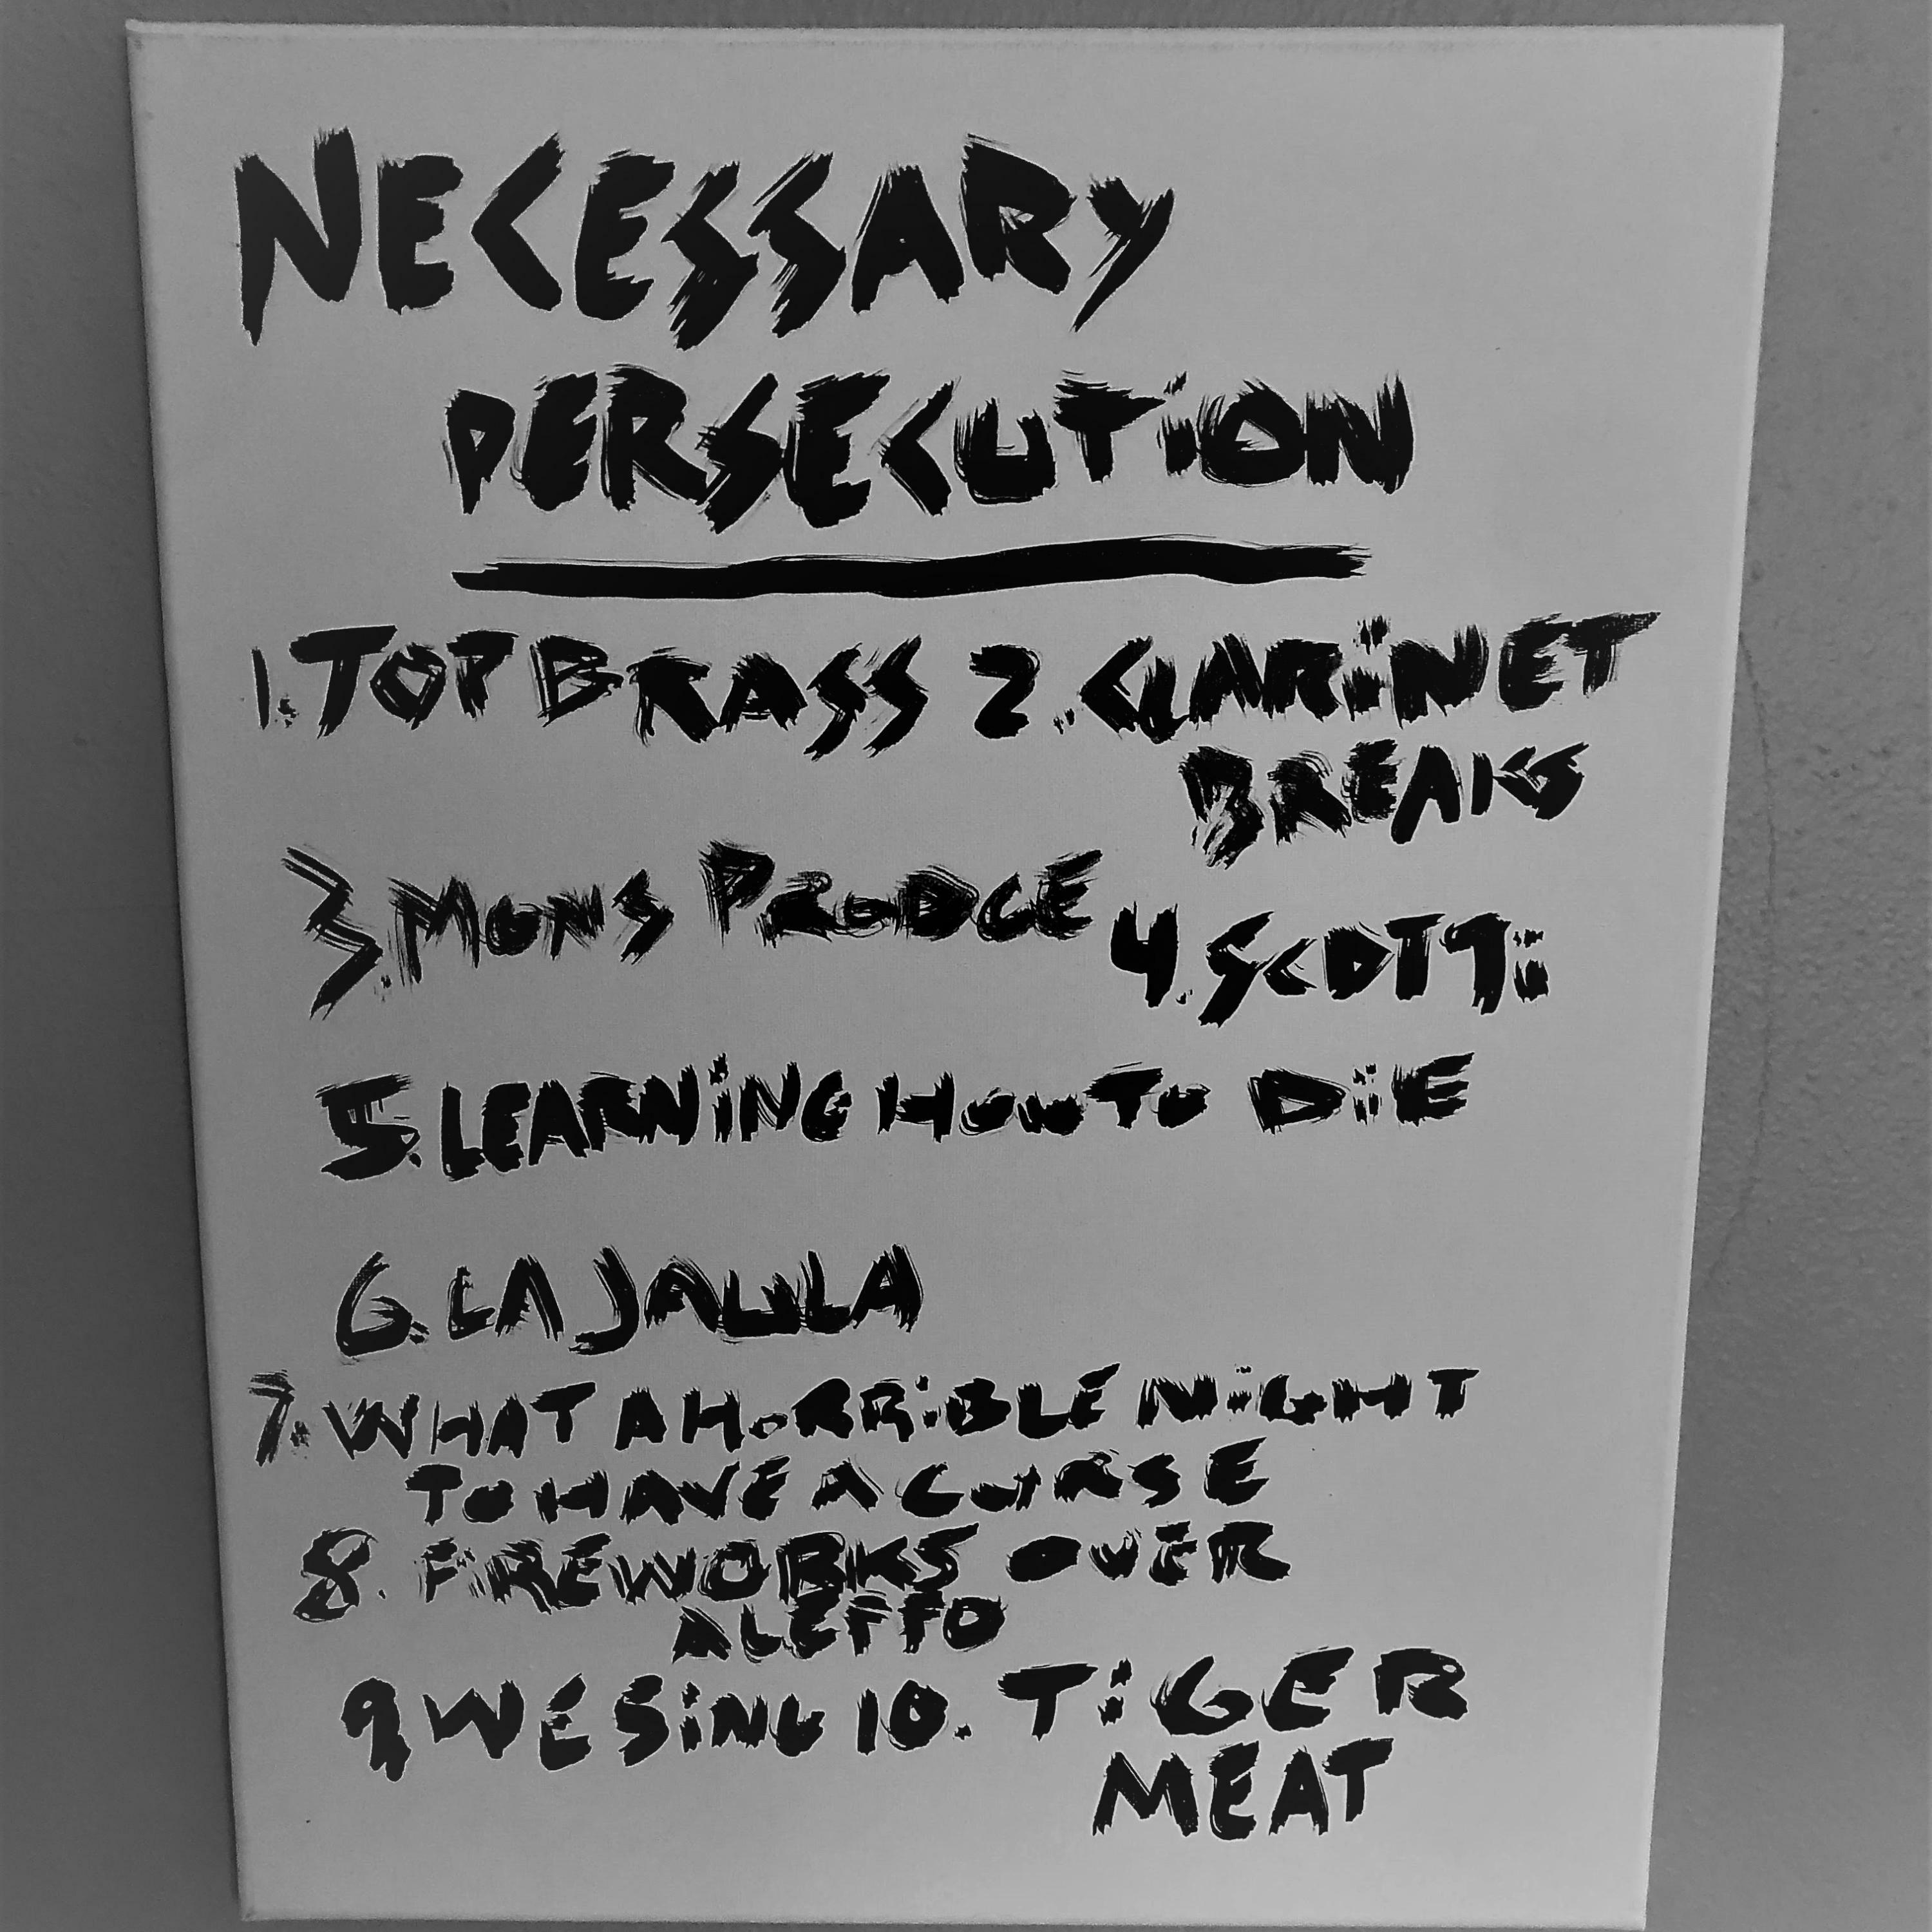 NECESSARY
PERSECUTiON
1. TOP BRASS 2. CLARiNET
BREAKS
3. MONS PRODCE 4. SCOTTi
5. LEARNiNG HOW TO DiE
6. LA JAULA
7. WHAT A HORRiBLE NiGHT
TO HAVE A CURSE
8. FiREWORKS OVER
ALEPPO
9 WE SiNG 10. TiGER
MEAT